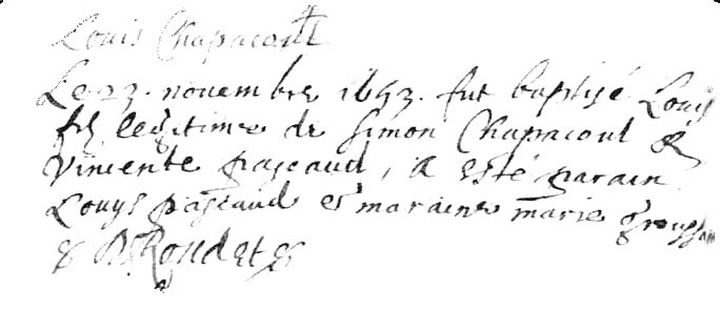 Louis Chapacoul
Le 23. novembre 1693. fut baptisé Louis
fils legitime de Simon Chapacoul &
Vincente pageaud, a esté parain
Louys pageaud et maraine marie
Rondet